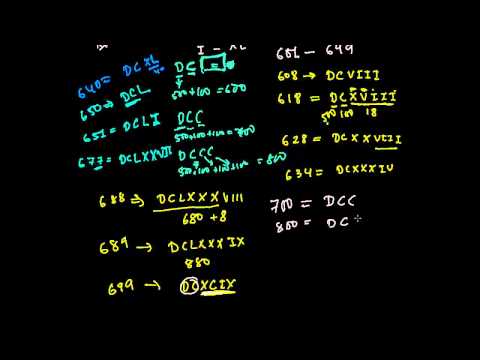 I - XL
640 = DCXL
40
650 → DCL
651 = DCLI
677 = DCLXXVII
688 → DCLXXXVIII
680 + 8
689 → DCLXXXIX
880
699 → DCXCIX
DC
500+100 = 600
DCC
500+100+100 = 700
DCCC
500+100+100+100 = 800
601 - 649
608 → DCVIII
618 = DCXVIII
500 100 18
628 = DCXXVIII
634 = DCXXXIV
700 = DCC
800 = DC